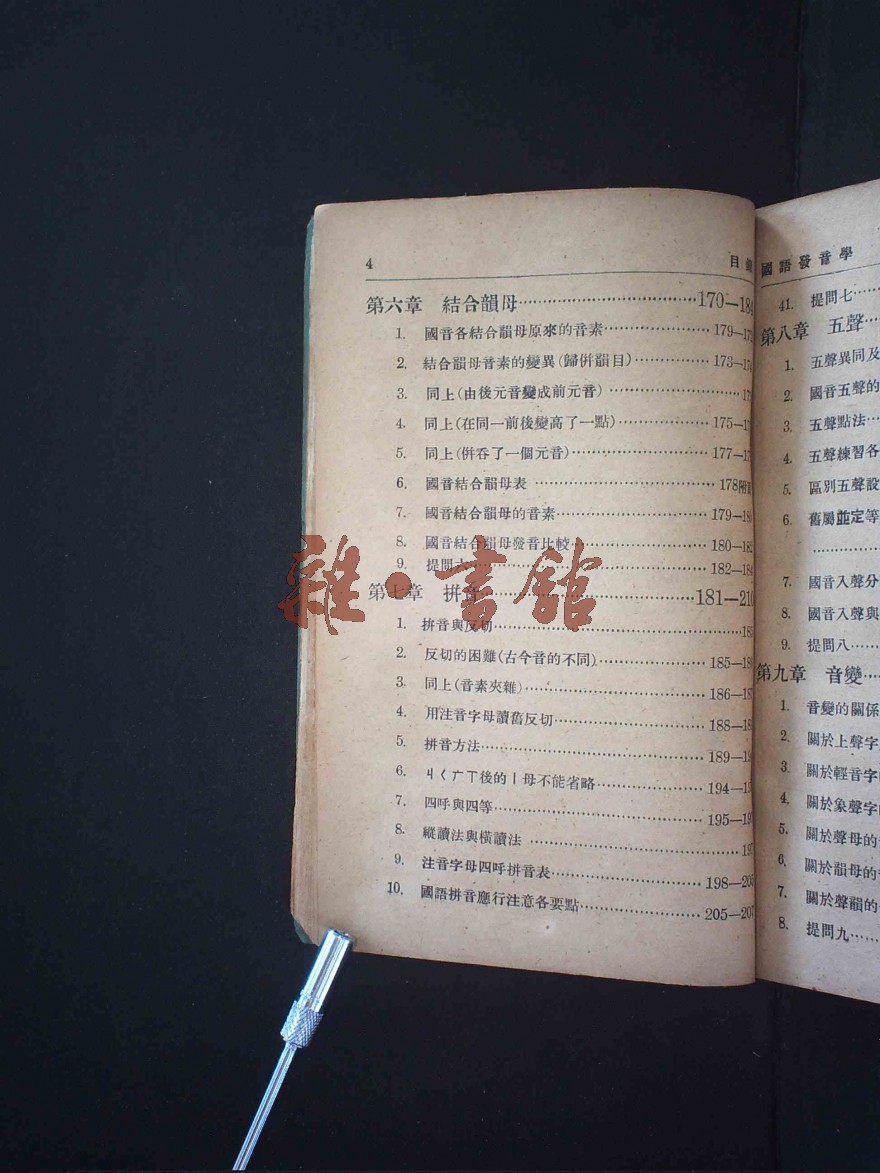 4 目
第六章 結合韻母 170—184
1. 國音各結合韻母原來的音素 179—17
2. 結合韻母音素的變異(歸併韻目) 173—17
3. 同上(由後元音變成前元音) 17
4. 同上(在同一前後變高了一點) 175—17
5. 同上(併吞了一個元音) 177—17
6. 國音結合韻母表 178附
7. 國音結合韻母的音素 179—18
8. 國音結合韻母發音比較 180—182
9. 提問六 182—184
第七章 拼音 181—210
1. 拼音與反切 18
2. 反切的困難(古今音的不同) 185—18
3. 同上(音素夾雜) 186—18
4. 用注音字母讀舊反切 188—18
5. 拼音方法 189—19
6. ㄐㄑㄏㄒ後的ㄧ母不能省略 194—19
7. 四呼與四等 195—19
8. 縱讀法與橫讀法 197
9. 注音字母四呼拼音表 198—205
10. 國語拼音應行注意各要點 205—207
國語發音學
41. 提問七
第八章 五聲
1. 五聲異同及
2. 國音五聲的
3. 五聲點法
4. 五聲練習各
5. 區別五聲設
6. 舊屬並定等
7. 國音入聲分
8. 國音入聲與
9. 提問八
第九章 音變
1. 音變的關係
2. 關於上聲字
3. 關於輕音字
4. 關於象聲字
5. 關於聲母的
6. 關於韻母的
7. 關於聲韻的
8. 提問九
雜·書館